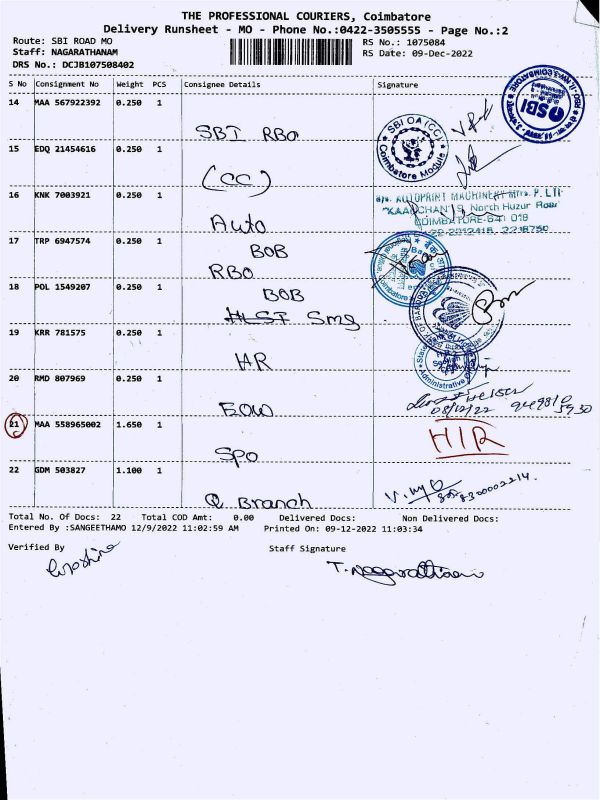 THE PROFESSIONAL COURIERS, Coimbatore
Delivery Runsheet - MO - Phone No.:0422-3505555 - Page No.:2
Route: SBI ROAD MO
RS No.: 1075084
Staff: NAGARATHANAM
RS Date: 09-Dec-2022
DRS No.: DCJB107508402
S No Consignment No Weight PCS Consignee Details Signature
14 MAA 567922392 0.250 1
SBI RBO
SBI OA (CC)
Coimbatore Module
SBI
15 EDQ 21454616 0.250 1
(CC)
16 KNK 7003921 0.250 1
AUTOPRINT MACHINERY Mfrs. P. LTD
North Huzur Road
COIMBATORE-641 018
Auto
17 TRP 6947574 0.250 1
BOB
RBO
18 POL 1549207 0.250 1
BOB
HLST Smg
19 KRR 781575 0.250 1
HR
Administrative
20 RMD 807969 0.250 1
EOW
08/12/22
21 MAA 558965002 1.650 1
HIR
SPO
22 GDM 503827 1.100 1
Q Branch
Total No. Of Docs: 22 Total COD Amt: 0.00 Delivered Docs: Non Delivered Docs:
Entered By :SANGEETHAMO 12/9/2022 11:02:59 AM Printed On: 09-12-2022 11:03:34
Verified By Staff Signature
T. Nagarathanam